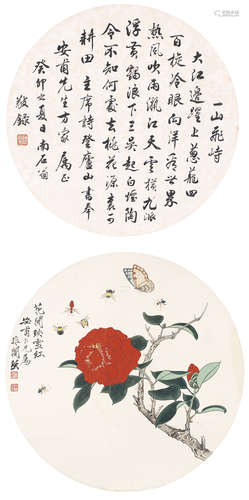 一山飛峙
大江邊躍上蔥蘢四
百旋冷眼向洋看世界
熱風吹雨灑江天雲橫九派
浮黃鶴浪下三吳起白烟陶
令不知何處去桃花源裏可
耕田 主席詩登廬山書奉
安甫先生方家属正
癸卯之夏日南石翁
敬錄
花開 雲紅
安甫仁兄属